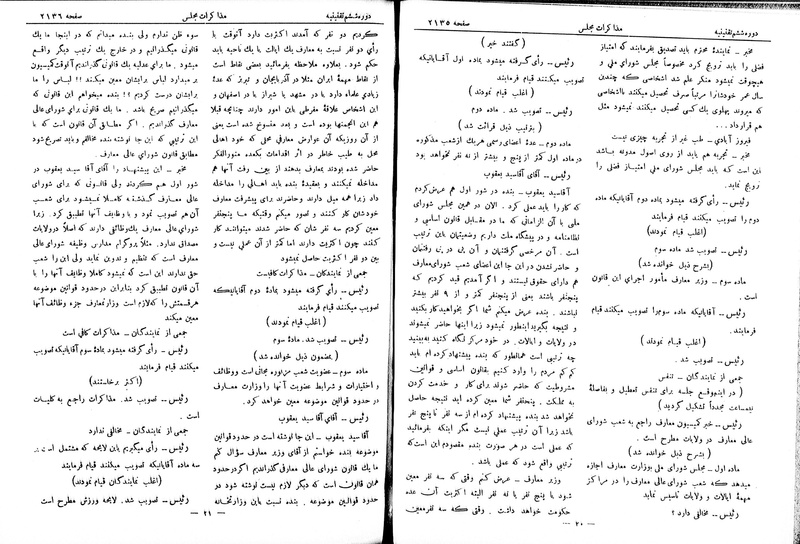 صفحه ۲۱۳۵ مذاکرات مجلس دوره ششم تقنینیه
مخبر — نمایندهٔ محترم باید تصدیق بفرمایند که امتیاز
فضلی را باید ترویج کرد مخصوصاً مجلس شورای ملی و
هیچوقت نمیشود منکر علم شد اشخاصی که چندین
سال عمر خودشان را صرف تحصیل میکنند با اشخاصی
که میروند پهلوی یك کسی تحصیل میکنند نمیشود مثل
هم قرارداد...
فیروز آبادی — طب غیر از تجربه چیزی نیست
مخبر — تجربه هم باید از روی اصول مدونه باشد
این است که باید مجلس شورای ملی امتیاز فضلی را
ترویج نماید.
رئیس — رأی گرفته میشود بماده دوم آقایانیکه ماده
دوم را تصویب میکنند قیام فرمایند
(اغلب قیام نمودند)
رئیس — تصویب شد ماده سوم
(بشرح ذیل خوانده شد)
ماده سوم — وزیر معارف مأمور اجرای این قانون
است.
رئیس — آقایانیکه ماده سومرا تصویب میکنند قیام
فرمایند.
(اغلب قیام نمودند)
رئیس — تصویب شد.
جمعی از نمایندگان — تنفس
(در اینموقع جلسه برای تنفس تعطیل و بفاصلهٔ
نیمساعت مجدداً تشکیل گردید)
رئیس — خبر کمیسیون معارف راجع به شعب شورای
عالی معارف در ولایات مطرح است.
(بشرح ذیل خوانده شد)
ماده اول — مجلس شورای ملی بوزارت معارف اجازه
میدهد که شعب شورای عالی معارف را در مراکز
مهمهٔ ایالات و ولایات تاسیس نماید
رئیس — مخالفی دارد ؟
(گفتند خیر)
رئیس — رأی گرفته میشود بماده اول آقایانیکه
تصویب میکنند قیام فرمایند
(اغلب قیام نمودند)
رئیس — تصویب شد. ماده دوم
(بترتیب ذیل قرائت شد)
ماده دوم — عدهٔ اعضای رسمی هر یك از شعب مذکوره
در ماده اول کمتر از پنج و بیشتر از نه نفر نخواهد بود
رئیس — آقای آقاسید یعقوب
آقاسید یعقوب — بنده در شور اول هم عرض کردم
که کار را باید عملی کرد. الان در همین مجلس شورای
ملی با آن الزاماتی که ما در مقابل قانون اساسی و
نظامنامه و در پیشگاه ملت داریم وضعیتمان باین ترتیب
است. آن مرخصی گرفتنهان و آن پی در پی رفتنهان
و حاضر نشدن در این جا این اعضای شعب شورای معارف
هم دارای حقوق نیستند و اگر آمدیم قید کردیم که
از پنجنفر باشند یعنی از پنجنفر کمتر و از ۹ نفر بیشتر
نباشند. بنده عرض میکنم شما اگر بخواهید کار بکنید
و نتیجه بگیرید اینطور نمیشود زیرا اینها حاضر نمیشوند
در ولایات و ایالات. در خود مرکز نگاه کنید ببینید
چه ترتیبی است همانطور که بنده پیشنهاد کرده ام باید
کم کم مردم را وارد کنیم بقانون اساسی و قوانین
مشروطیت که حاضر شوند برای کار و خدمت کردن
به مملکت. پنجنفر شما معین کرده اید نتیجه حاصل
نخواهد شد بنده پیشنهاد کرده ام از سه نفر تا پنج نفر
باشد زیرا آن ترتیب عملی نیست مگر اینکه بفرمائید
که عملی است در هر صورت بنده مقصودم این است که
ترتیبی واقع شود که عملی باشد.
وزیر معارف — عرض کنم وقتی که سه نفر معین
شود یا پنج نفر یا نه نفر البته اکثریت آن عده
حکومت خواهد داشت. وقتی که سه نفر معین
— ۲۰ —
صفحه ۲۱۳۶ مذاکرات مجلس دوره ششم تقنینیه
کردیم دو نفر که آمدند اکثریت دارد آنوقت با
رأی دو نفر نسبت به معارف یك ایالت یا یك ناحیه باید
حکم شود. بعلاوه ملاحظه بفرمائید بعضی نقاط است
از نقاط مهمهٔ ایران مثلا در آذربایجان و تبریز که عدهٔ
زیادی علماء دارد یا در مشهد یا شیراز یا در اصفهان و
این اشخاص علاقهٔ مفرطی باین امور دارند چنانچه قبلا
هم این انجمنها بوده است و بعد منسوخ شده است یعنی
از آن روزیکه آن عوارض معارفی محلی که خود اهالی
محل به طیب خاطر در اثر اقدامات یکعده منورالفکر
حاضر شده بودند بمعارف بدهند از بین رفت آنها هم
مداخله نمیکنند و بعقیدهٔ بنده باید اهالی را مداخله
داد زیرا همه میل دارند و حاضرند برای پیشرفت معارف
خودشان کار کنند و تصور میکنم وقتیکه ما پنجنفر
معین کردیم سه نفر شان که حاضر شدند میتوانند کار
کنند چون اکثریت دارند اما کمتر از آن عملی نیست و
بین دو نفر اکثریت حاصل نمیشود
جمعی از نمایندگان — مذاکرات کافیست
رئیس — رأی گرفته میشود بماده دوم آقایانیکه
تصویب میکنند قیام فرمایند
(اغلب قیام نمودند)
رئیس — تصویب شد. مادهٔ سوم
(بمضمون ذیل خوانده شد)
ماده سوم — عضویت شعب مزبوره مجانی است و وظائف
و اختیارات و شرایط عضویت آنها را وزارت معارف
در حدود قوانین موضوعه معین خواهد کرد.
رئیس — آقای آقا سید یعقوب
آقا سید یعقوب — این جا نوشته است در حدود قوانین
موضوعه بنده خواستم از آقای وزیر معارف سؤال کنم
ما یك قانون شورای عالی معارفی گذراندیم اگر در حدود
همان قانون است که دیگر لازم نیست نوشته شود در
حدود قوانین موضوعه. بنده نسبت باین وزارتخانه
سوء ظن ندارم ولی بنده میدانم که در اینجا ما یك
قانونی میگذرانیم و در خارج یك ترتیب دیگر واقع
میشود. ما برای عدلیه یك قانونی گذراندیم آنوقت کمیسیون
بر میدارد لباس برایشان معین میکند !! لباس را ما
برایشان درست کردیم !! بنده میخواهم این قانونی که
میگذرانیم صریح باشد. ما یك قانونی برای شورای عالی
معارف گذراندیم. اگر مطابق آن قانون است که با
این ترتیبی که این جا نوشته بنده مخالفم و باید صریح شود
مطابق قانون شورای عالی معارف.
مخبر — این پیشنهاد را آقای آقا سید یعقوب در
شور اول هم کردند ولی قانونی که برای شورای
عالی معارف گذشته کاملا نمیشود برای شعب
آن هم تصویب نمود و یا وظایف آنها تطبیق کرد. زیرا
شورای عالی معارف یك وظائفی دارند که اصلاً در ولایات
مصداق ندارد. مثلاً پروگرام مدارس وظیفه شورای عالی
معارف است که تنظیم و تدوین نماید ولی این را شعب
حق ندارند این است که نمیشود کاملا وظایف آنها را با
آن قانون تطبیق کرد بنابراین در حدود قوانین موضوعه
هر قسمتش را که لازم است وزارت معارف جزء وظائف آنها
معین میکند
جمعی از نمایندگان — مذاکرات کافی است
رئیس — رأی گرفته میشود بمادهٔ سوم آقایانیکه تصویب
میکنند قیام فرمایند
(اکثر برخاستند)
رئیس — تصویب شد. مذاکرات راجع به کلیات
است.
جمعی از نمایندگان — مخالفی ندارد
رئیس — رأی میگیریم باین لایحه که مشتمل است بر
سه ماده آقایانیکه تصویب میکنند قیام فرمایند
(اغلب نمایندگان قیام نمودند)
رئیس — تصویب شد. لایحه ورزش مطرح است
— ۲۱ —